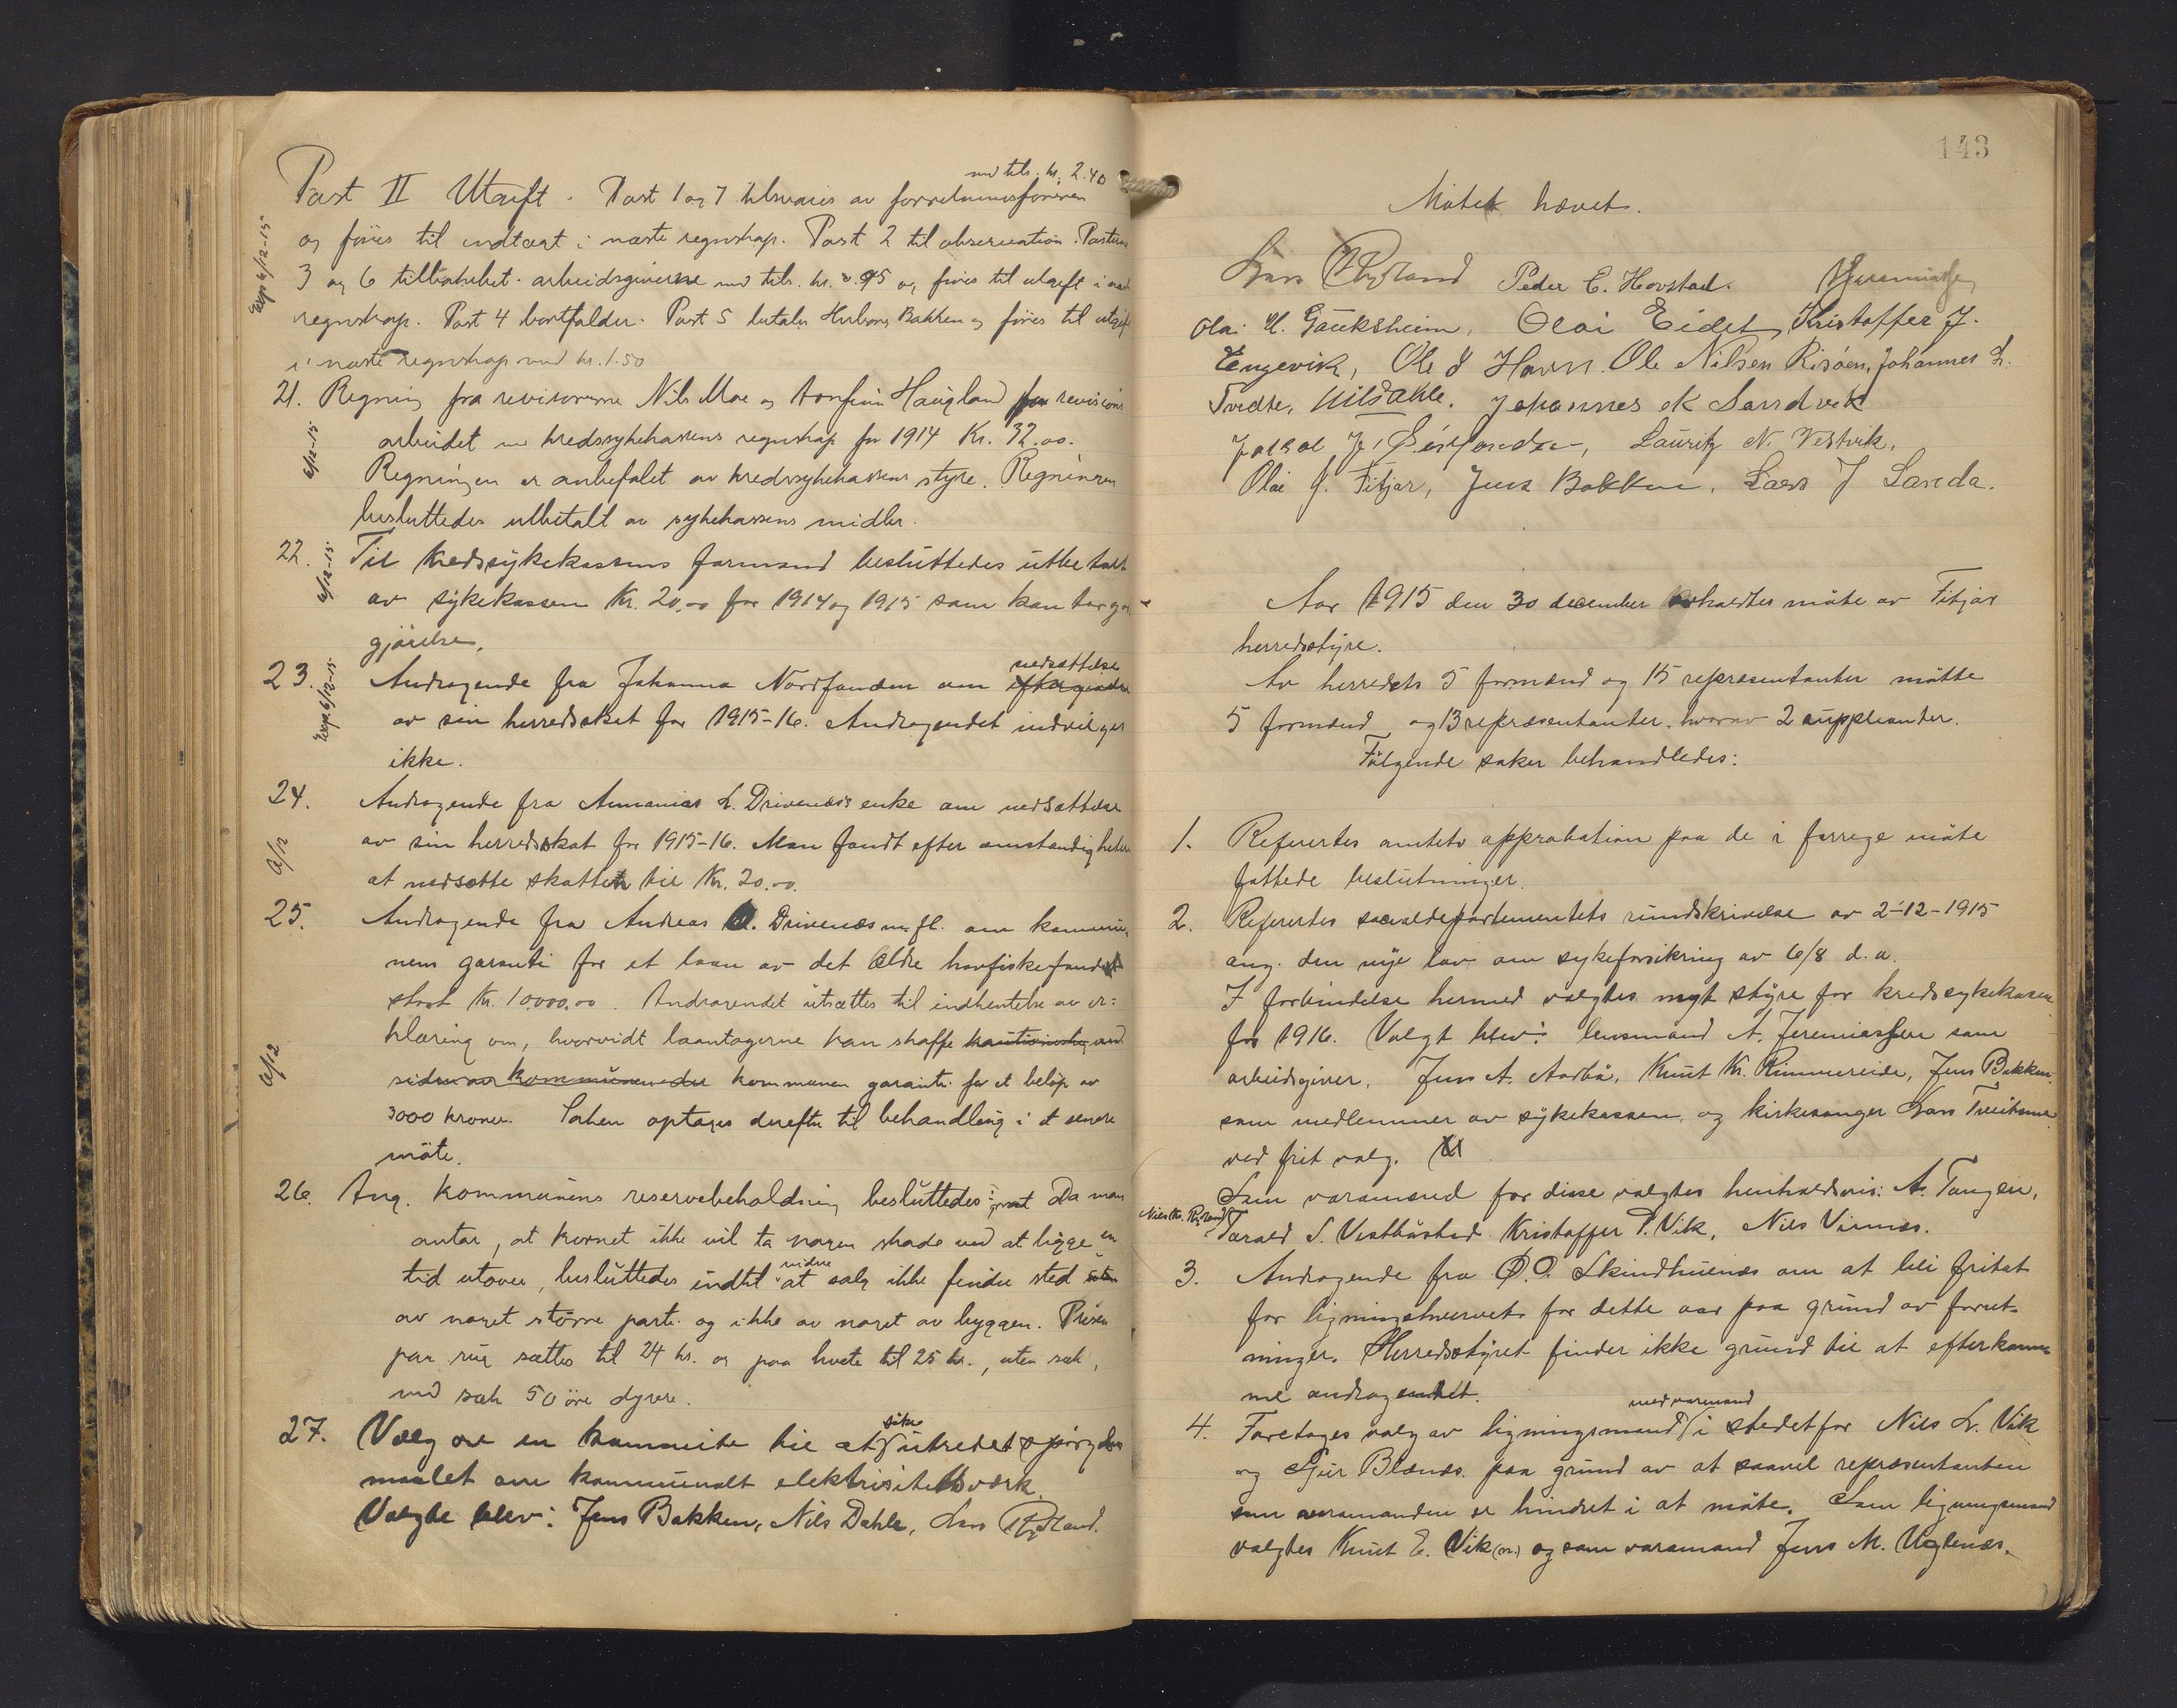 Post II Utgift. Post 1 og 7 tilsvares av forretningsföreren med tils. kr. 2.40
og föres til indtægt i næste regnskap. Post 2 til observation. Posterne
3 og 6 tilbakebet. arbeidsgiverne med tils. kr. 0.95 og föres til utgift i næste
regnskap. Post 4 bortfalder. Post 5 betales Bakken og föres til utgift
i næste regnskap med kr. 1.50
Exp 6/12-15
21. Regning fra revisorerne Nils Moe og Tonfinn Haugland for revisions
arbeidet med kredssykekassens regnskap for 1914 Kr. 32.00.
6/12-15
Regningen er anbefalet av kredssykekassens styre. Regningen
besluttedes utbetalt av sykekassens midler.
22. Til kredssykekassens formand besluttedes utbetalt
6/12-15
av sykekassen Kr. 20,00 for 1914 og 1915 som kontorgodt-
gjörelse.
23. Andragende fra Johanna Nordfonden om eftergivelse nedsættelse
Exp. 6/12-15
av sin herredsskat for 1915-16. Andragendet indvilges
ikke.
24. Andragende fra Ananias L. Drivenæs's enke om nedsættelse
6/12
av sin herredsskat for 1915-16. Man fandt efter omstændigheterne
at nedsætte skatten til Kr. 20.00.
25. Andragende fra Andreas O. Drivenæs m. fl. om kommu-
nens garanti for et laan av det Ældre havfiskefond
stort Kr. 10000,00. Andragendet utsættes til indhentelse av er=
klæring om, hvorvidt laantagerne kan skaffe kautionister
6/12
kommunen garanti for et beløp av
3000 kroner. Saken optages derefter til behandling i et senere
möte.
26. Ang. kommunens reservebeholdning besluttedes: Da man
antar, at kornet ikke vil ta nogen skade ved at ligge en
tid utover, besluttedes indtil videre at salg ikke finder sted
av noget större parti og ikke av noget av byggen. Prisen
paa rug sættes til 24 kr. og paa hvete til 25 kr., uten sæk,
med sæk 50 öre dyrere.
27. Valg av en komite til at söke utredet spörgs-
maalet om kommunalt elektrisitetsværk.
Valgte blev: Jens Bakken, Nils Dahle, Lars Rydland.
143
Mötet hævet.
Lars Rydland Peder C. Hovstad. AJeremiassen
Olai H. Gauksheim, Olai Eidet, Kristoffer J.
Engevik, Ole J Havn. Ole Nilsen Risöen, Johannes L.
Tvedte, NilsDahle. Johannes K Sandvik
Jakob J. Sörfonden, Lauritz N. Vestvik,
Olai J. Fitjar, Jens Bakken, Lars J Landa.
Aar 1915 den 30 december avholdtes möte av Fitjar
herredsstyre.
Av herredets 5 formænd og 15 repræsentanter mötte
5 formænd og 13 repræsentanter, hvorav 2 suppleanter.
Fölgende saker behandledes:
1. Referertes amtets approbation paa de i forrige möte
fattede beslutninger.
2. Referertes socialdepartementets rundskrivelse av 2-12-1915
ang. den nye lov om sykeforsikring av 6/8 d. a.
I forbindelse hermed valgtes nyt styre for kredssykekassen
for 1916. Valgt blev: lensmand A. Jeremiassen som
arbeidsgiver, Jens A. Aarbö, Knut Kr. Rimmereide, Jens Bakken
som medlemmer av sykekassen, og kirkesanger Lars
ved frit valg.
Som varamænd for disse valgtes henholdsvis: A. Tangen,
Nils Kr. Rydland Tarald S. Vestböstad Kristoffer P. Vik, Nils Vinnes.
3. Andragende fra O. O. Skindhuenæs om at bli fritat
for ligningshvervet for dette aar paa grund av forret-
ninger. Herredsstyret finder ikke grund til at efterkom-
me andragendet.
4. Foretages valg av ligningsmand med varamand i stedetfor Nils L. Vik
og Geir Blænes. paa grund av at saavel repræsentanten
som varamanden er hindret i at möte. Som ligningsmand
valgtes Knut E. Vik (n.) og som varamand Jens M. Uglenæs.